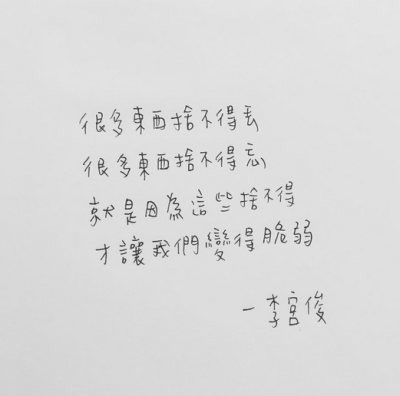 很多東西捨不得丟
很多東西捨不得忘
就是因為這些捨不得
才讓我們變得脆弱
－李宮俊